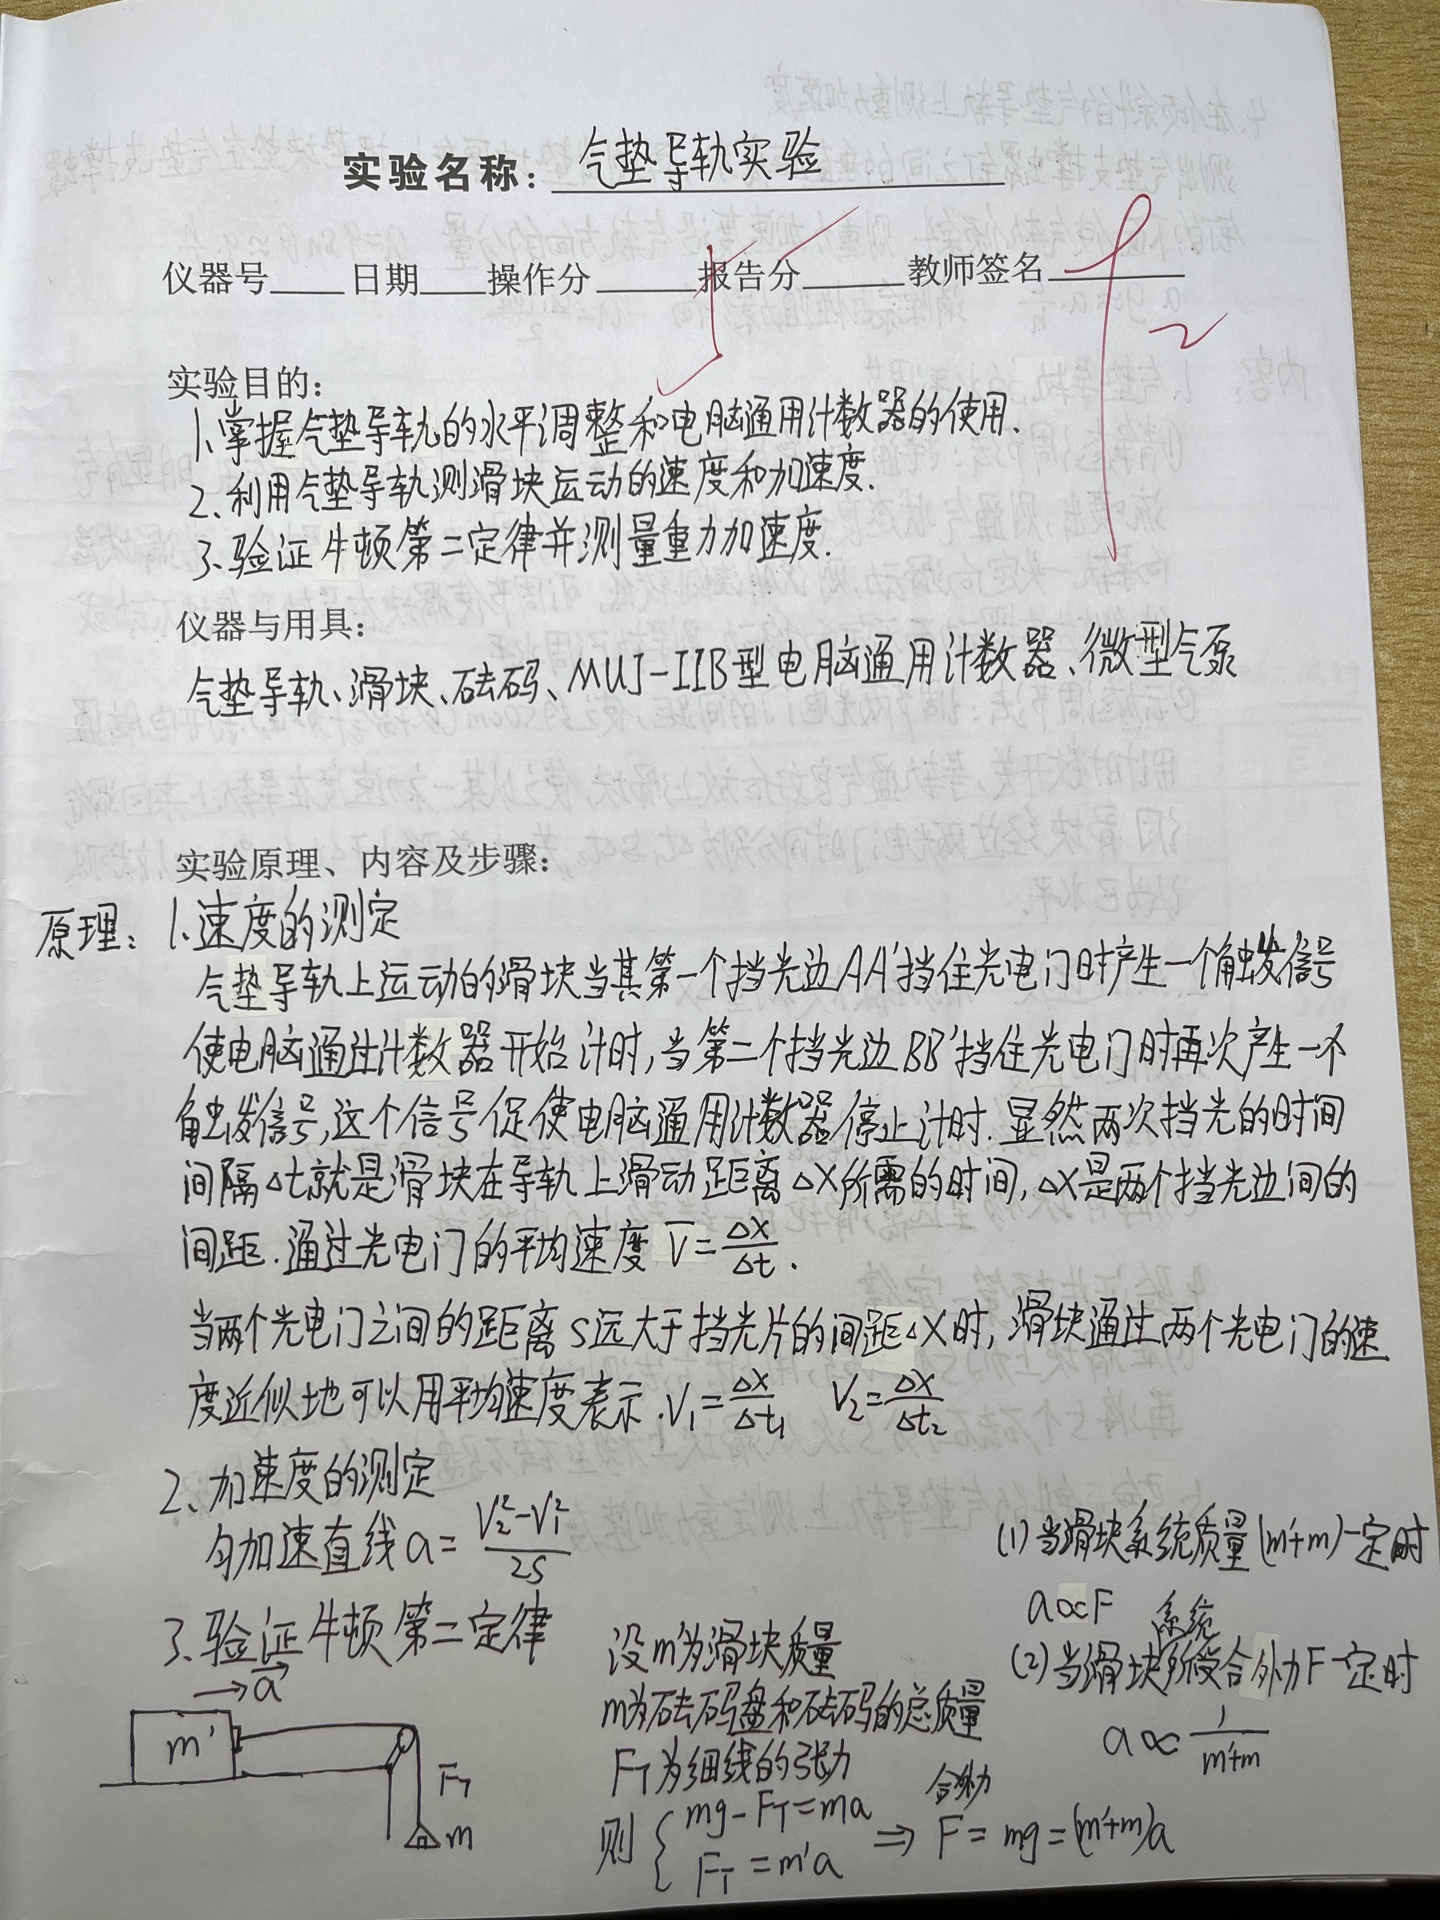 实验名称：气垫导轨实验
仪器号____日期____操作分____报告分____教师签名____
实验目的：
1、掌握气垫导轨的水平调整和电脑通用计数器的使用.
2、利用气垫导轨测滑块运动的速度和加速度.
3、验证牛顿第二定律并测量重力加速度.
仪器与用具：
气垫导轨、滑块、砝码、MUJ-IIB型电脑通用计数器、微型气泵
实验原理、内容及步骤：
原理：1、速度的测定
气垫导轨上运动的滑块当其第一个挡光边AA'挡住光电门时产生一个触发信号
使电脑通过计数器开始计时,当第二个挡光边BB'挡住光电门时再次产生一个
触发信号,这个信号促使电脑通用计数器停止计时.显然两次挡光的时间
间隔△t就是滑块在导轨上滑动距离△X所需的时间,△X是两个挡光边间的
间距.通过光电门的平均速度 V̄=△X/△t.
当两个光电门之间的距离S远大于挡光片的间距△X时,滑块通过两个光电门的速
度近似地可以用平均速度表示.V₁=△X/△t₁ V₂=△X/△t₂
2、加速度的测定
匀加速直线a=(V₂²-V₁²)/2S
3、验证牛顿第二定律
→a⃗
m'
F_T
m
设m'为滑块质量
m为砝码盘和砝码的总质量
F_T为细线的张力
则{mg-F_T=ma
F_T=m'a
⇒ 合外力 F=mg=(m'+m)a
(1)当滑块系统质量(m'+m)一定时
a∝F
(2)当滑块系统所受合外力F一定时
a∝1/(m'+m)